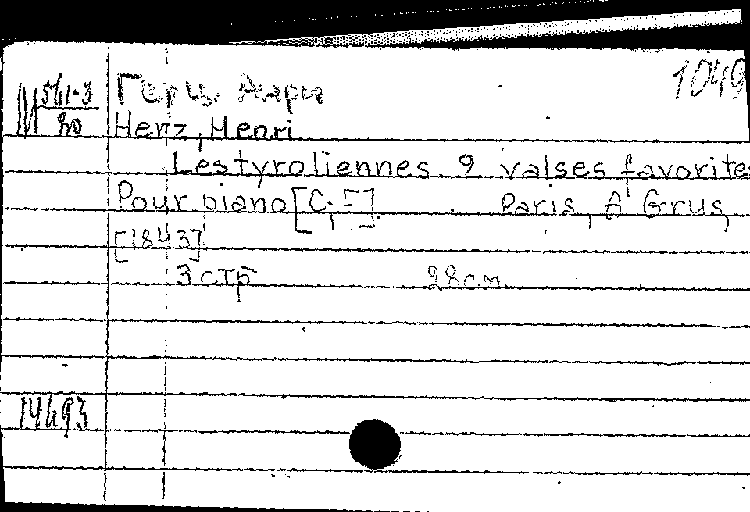 1049
М 561-3
80
Герц. Анри
Herz, Henri
Les tyroliennes. 2 valses favorites
Pour piano [C; F]. Paris, A Grus,
[1843]
3 стр 28 см.
14693